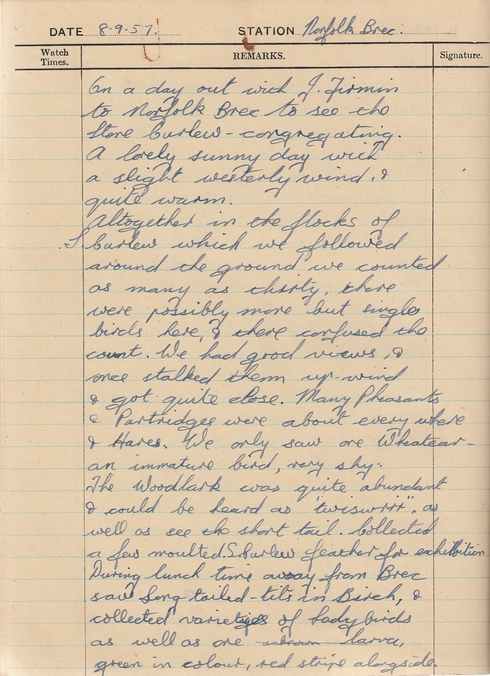 DATE 8-9-57. STATION Norfolk Brec.
Watch Times. REMARKS. Signature.
On a day out with J. Firmin
to Norfolk Brec to see the
Stone Curlew - congregating.
A lovely sunny day with
a slight westerly wind, &
quite warm.
Altogether in the flocks of
S Curlew which we followed
around the ground we counted
as many as thirty, there
were possibly more but single
birds here, & there confused the
count. We had good views, &
once stalked them up-wind
& got quite close. Many Pheasants
& Partridges were about every where
& Hares. We only saw one Wheatear -
an immature bird, very shy.
The Woodlark was quite abundant
& could be heard as "twiswirr", as
well as see the short tail. Collected
a few moulted S. Curlew feather for exhibition.
During lunch time away from Brec
saw Long tailed-tits in Birch, &
collected varietyes of Ladybirds
as well as one larva,
green in colour, red stripe alongside.